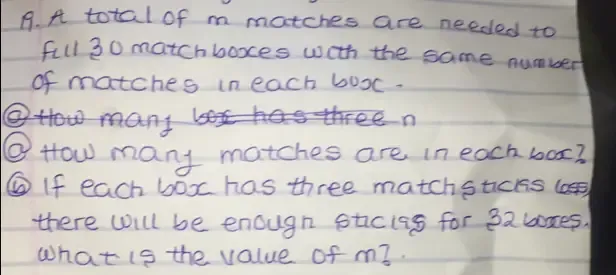 A. A total of m matches are needed to
fill 30 matchboxes with the same number
of matches in each box.
@ How many box has three n
@ How many matches are in each box?
⑥ If each box has three matchsticks less
there will be enough sticks for 32 boxes.
What is the value of m?